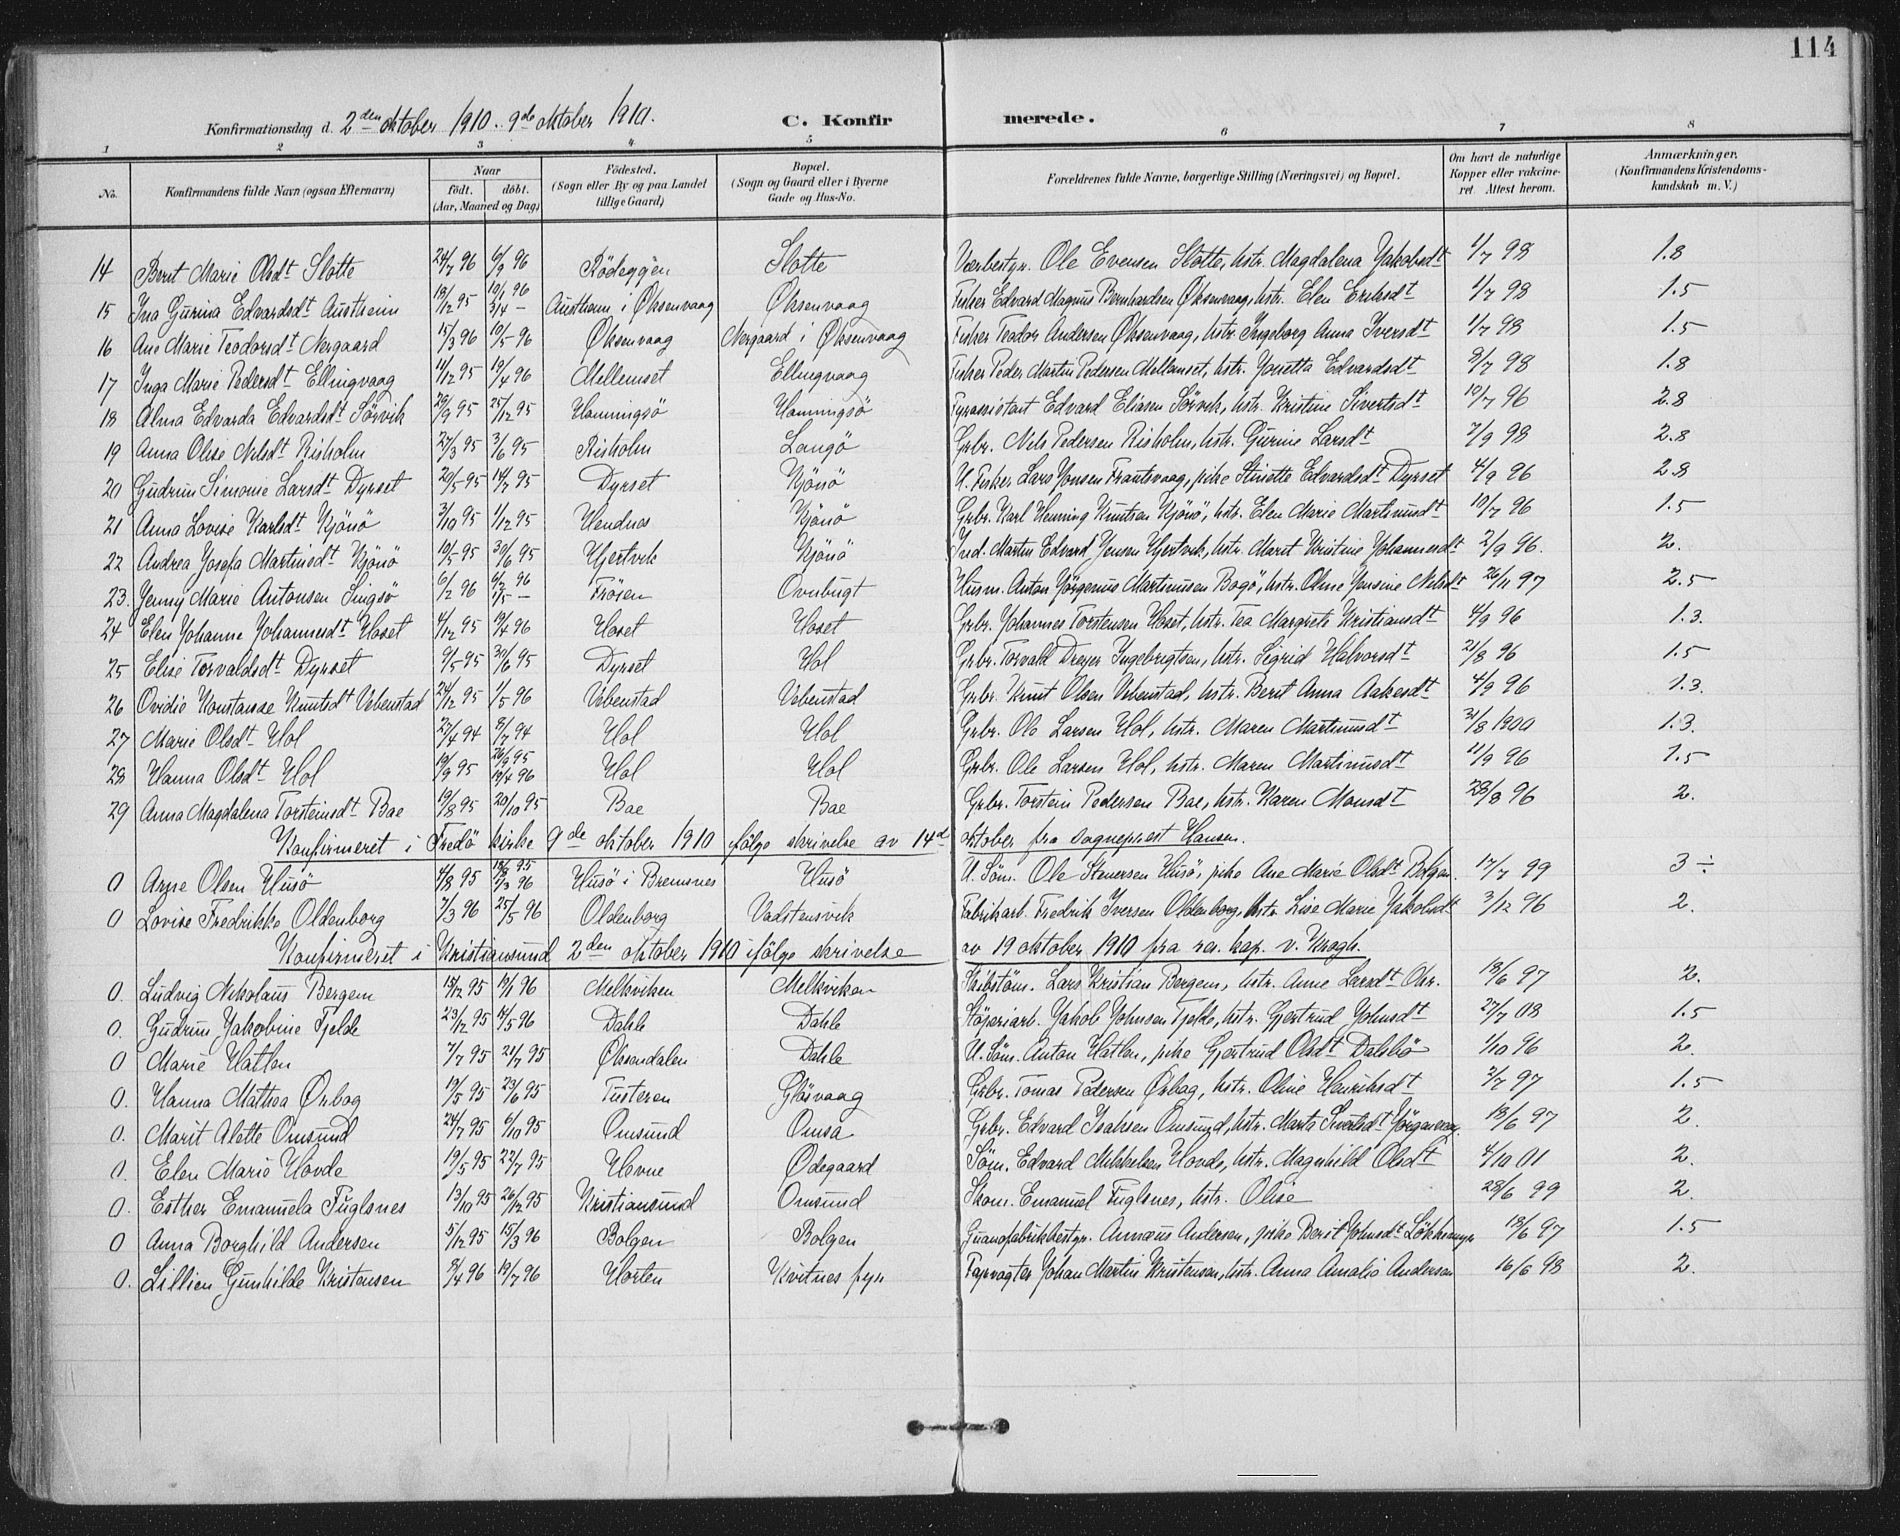 114
Konfirmationsdag d. 2den oktober 1910. 9de oktober 1910. C. Konfirmerede.
1 2 3 4 5 6 7 8
No. Konfirmandens fulde Navn (ogsaa Efternavn) Naar födt. döbt. (Aar, Maaned og Dag) Födested. (Sogn eller By og paa Landet tillige Gaard) Bopæl. (Sogn og Gaard eller i Byerne Gade og Hus-No. Forældrenes fulde Navne, borgerlige Stilling (Næringsvei) og Bopæl. Om havt de naturlige Kopper eller vakcineret. Attest herom. Anmærkninger. (Konfirmandens Kristendomskundskab m. V.)
14 Berit Marie Olsdt Slotte 24/7 96 6/9 96 Rödeggen Slotte Værbestyr. Ole Evensen Slotte, hstr. Magdalena Jakobsdt 1/7 98 1.8
15 Ina Gurina Edvardsdt Austheim 18/12 95 10/1 96 3/4 — Austheim i Öksenvaag Öksenvaag Fisker Edvard Magnus Bernhardsen Öksenvaag, hstr. Elen Eriksdt 1/7 98 1.5
16 Ane Marie Teodorsdt Nergaard 15/3 96 10/5 96 Öksenvaag Nergaard i Öksenvaag Fisker Teodor Andersen Öksenvaag, hstr. Ingeborg Anna Iversdt 1/7 98 1.5
17 Inga Marie Pedersdt Ellingvaag 11/12 95 19/4 96 Mellemset Ellingvaag Fisker Peder Martin Pedersen Mellemset, hstr. Jonetta Edvardsdt 8/7 98 1.8
18 Alma Edvarda Edvardsdt Sörvik 29/9 95 25/12 95 Hanningsö Hanningsö Fyrassistant Edvard Eliasen Sörvik, hstr. Kristine Sivertsdt 10/7 96 2.8
19 Anna Olise Nilsdt Risholm 27/3 95 3/6 95 Risholm Langö Grbr. Nils Pedersen Risholm, hstr. Gurine Larsdt 7/9 98 2.8
20 Gudrun Simonie Larsdt Dyrset 20/5 95 14/7 95 Dyrset Kjönö U. Fisker Lars Jonsen Frantsvaag, pike Stinette Edvardsdt Dyrset 4/9 96 2.8
21 Anna Lovise Karlsdt Kjönö 3/10 95 1/12 95 Hendnes Kjönö Grbr. Karl Henning Knutsen Kjönö, hstr. Elen Marie Martinusdt 10/7 96 1.5
22 Andrea Josefa Martinsdt Kjönö 10/5 95 30/6 95 Hjertvik Kjönö Ind. Martin Edvard Jensen Hjertvik, hstr. Marit Kristine Johannesdt 2/9 96. 2.
23. Jenny Marie Antonsen Singsö 6/2 96 6/2 96 1/5 — Fröien Ovnbugt Husm. Anton Jörgenus Martinusen Bogö, hstr. Oline Jonsine Nilsdt 26/11 97 2.5
24 Elen Johanne Johannesdt Hoset 4/12 95 19/4 96 Hoset Hoset Grbr. Johannes Torstensen Hoset, hstr. Tea Margrete Kristiansdt 4/9 96 1.3.
25 Elise Torvaldsdt Dyrset 9/5 95 30/6 95 Dyrset Hol Grbr. Torvald Dreyer Ingebrigtsen, hstr. Sigrid Halvorsdt 21/8 96 1.5
26 Ovidie Konstanse Knutsdt Vebenstad 24/12 95 1/5 96 Vebenstad Vebenstad Grbr. Knut Olsen Vebenstad, hstr. Berit Anna Aakesdt 4/9 96 1.3.
27 Marie Olsdt Hol 27/4 94 8/7 94 Hol Hol Grbr. Ole Larsen Hol, hstr. Maren Martinusdt 31/8 1900 1.3
28 Hanna Olsdt Hol 19/9 95 26/9 95 19/4 96 Hol Hol Grbr. Ole Larsen Hol, hstr. Maren Martinusdt 11/9 96 1.5
29 Anna Magdalena Torsteinsdt Bae 19/8 95 20/10 95 Bae Bae Grbr. Torstein Pedersen Bae, hstr. Karen Monsdt 28/8 96 2.
Konfirmeret i Fredö kirke 9de oktober 1910 ifölge skrivelse av 14d oktober fra sogneprest Hansen.
0 Arne Olsen Husö 4/8 95 18/8 95 7/3 96 Husö i Bremsnes Husö U. Söm. Ole Stenersen Husö, pike Ane Marie Olsdt Bolgen. 17/7 99 3 ÷
0 Lovise Fredrikke Oldenborg 7/3 96 25/5 96 Oldenborg Vadstensvik Fabrikarb. Fredrik Iversen Oldenborg, hstr. Lise Marie Jakobsdt 3/12 96 2.
Konfirmeret i Kristiansund 2den oktober 1910 ifölge skrivelse av 19 oktober 1910 fra res. kap. v. Krogh.
0. Ludvig Nikolaus Bergem 15/12 95 19/1 96 Melkviken Melkviken Skibstöm. Lars Kristian Bergem, hstr. Anne Larsdt Okr. 13/6 97 2.
0. Gudrun Jakobine Fjelde 23/12 95 14/5 96 Dahle Dahle Höjeriarb. Jakob Johnsen Fjelde, hstr. Gjertrud Johnsdt 27/7 08 1.5
0 Marie Hatlen 7/7 95 21/7 95 Öksendalen Dahle U. Söm. Anton Hatlen, pike Gjertrud Olsdt Dalebö 1/10 96 2.
0. Hanna Mathea Örbog 19/5 95 23/6 95 Tusteren Glasvaag Grbr. Tomas Pedersen Örbog, hstr. Oline Henriksdt 2/7 97 1.5
0. Marit Alette Omsund 24/7 95 6/10 95 Omsund Omsa Grbr. Edvard Isaksen Omsund, hstr. Marta 13/6 97 2.
0. Elen Marie Hovde 19/5 95 22/7 95 Hevne Ödegaard Söm. Edvard Mikkelsen Hovde, hstr. Magnhild Olsdt 4/10 01 2.
0. Esther Emanuela Fuglsnes 13/10 95 26/12 95 Kristiansund Omsund Skom. Emanuel Fuglsnes, hstr. Olise 28/6 99 2.
0 Anna Borghild Andersen 5/12 95 15/3 96 Bolgen Bolgen Guanofabrikbestyr. Annæus Andersen, pike Berit Johnsdt Lökkemyr 13/6 97 1.5
0. Lillien Gunhilde Kristensen 8/4 96 19/7 96 Horten Kvitnes fyr Fyrvogter Johan Martin Kristensen, hstr. Anna Amalie Andersen 16/6 98 2.